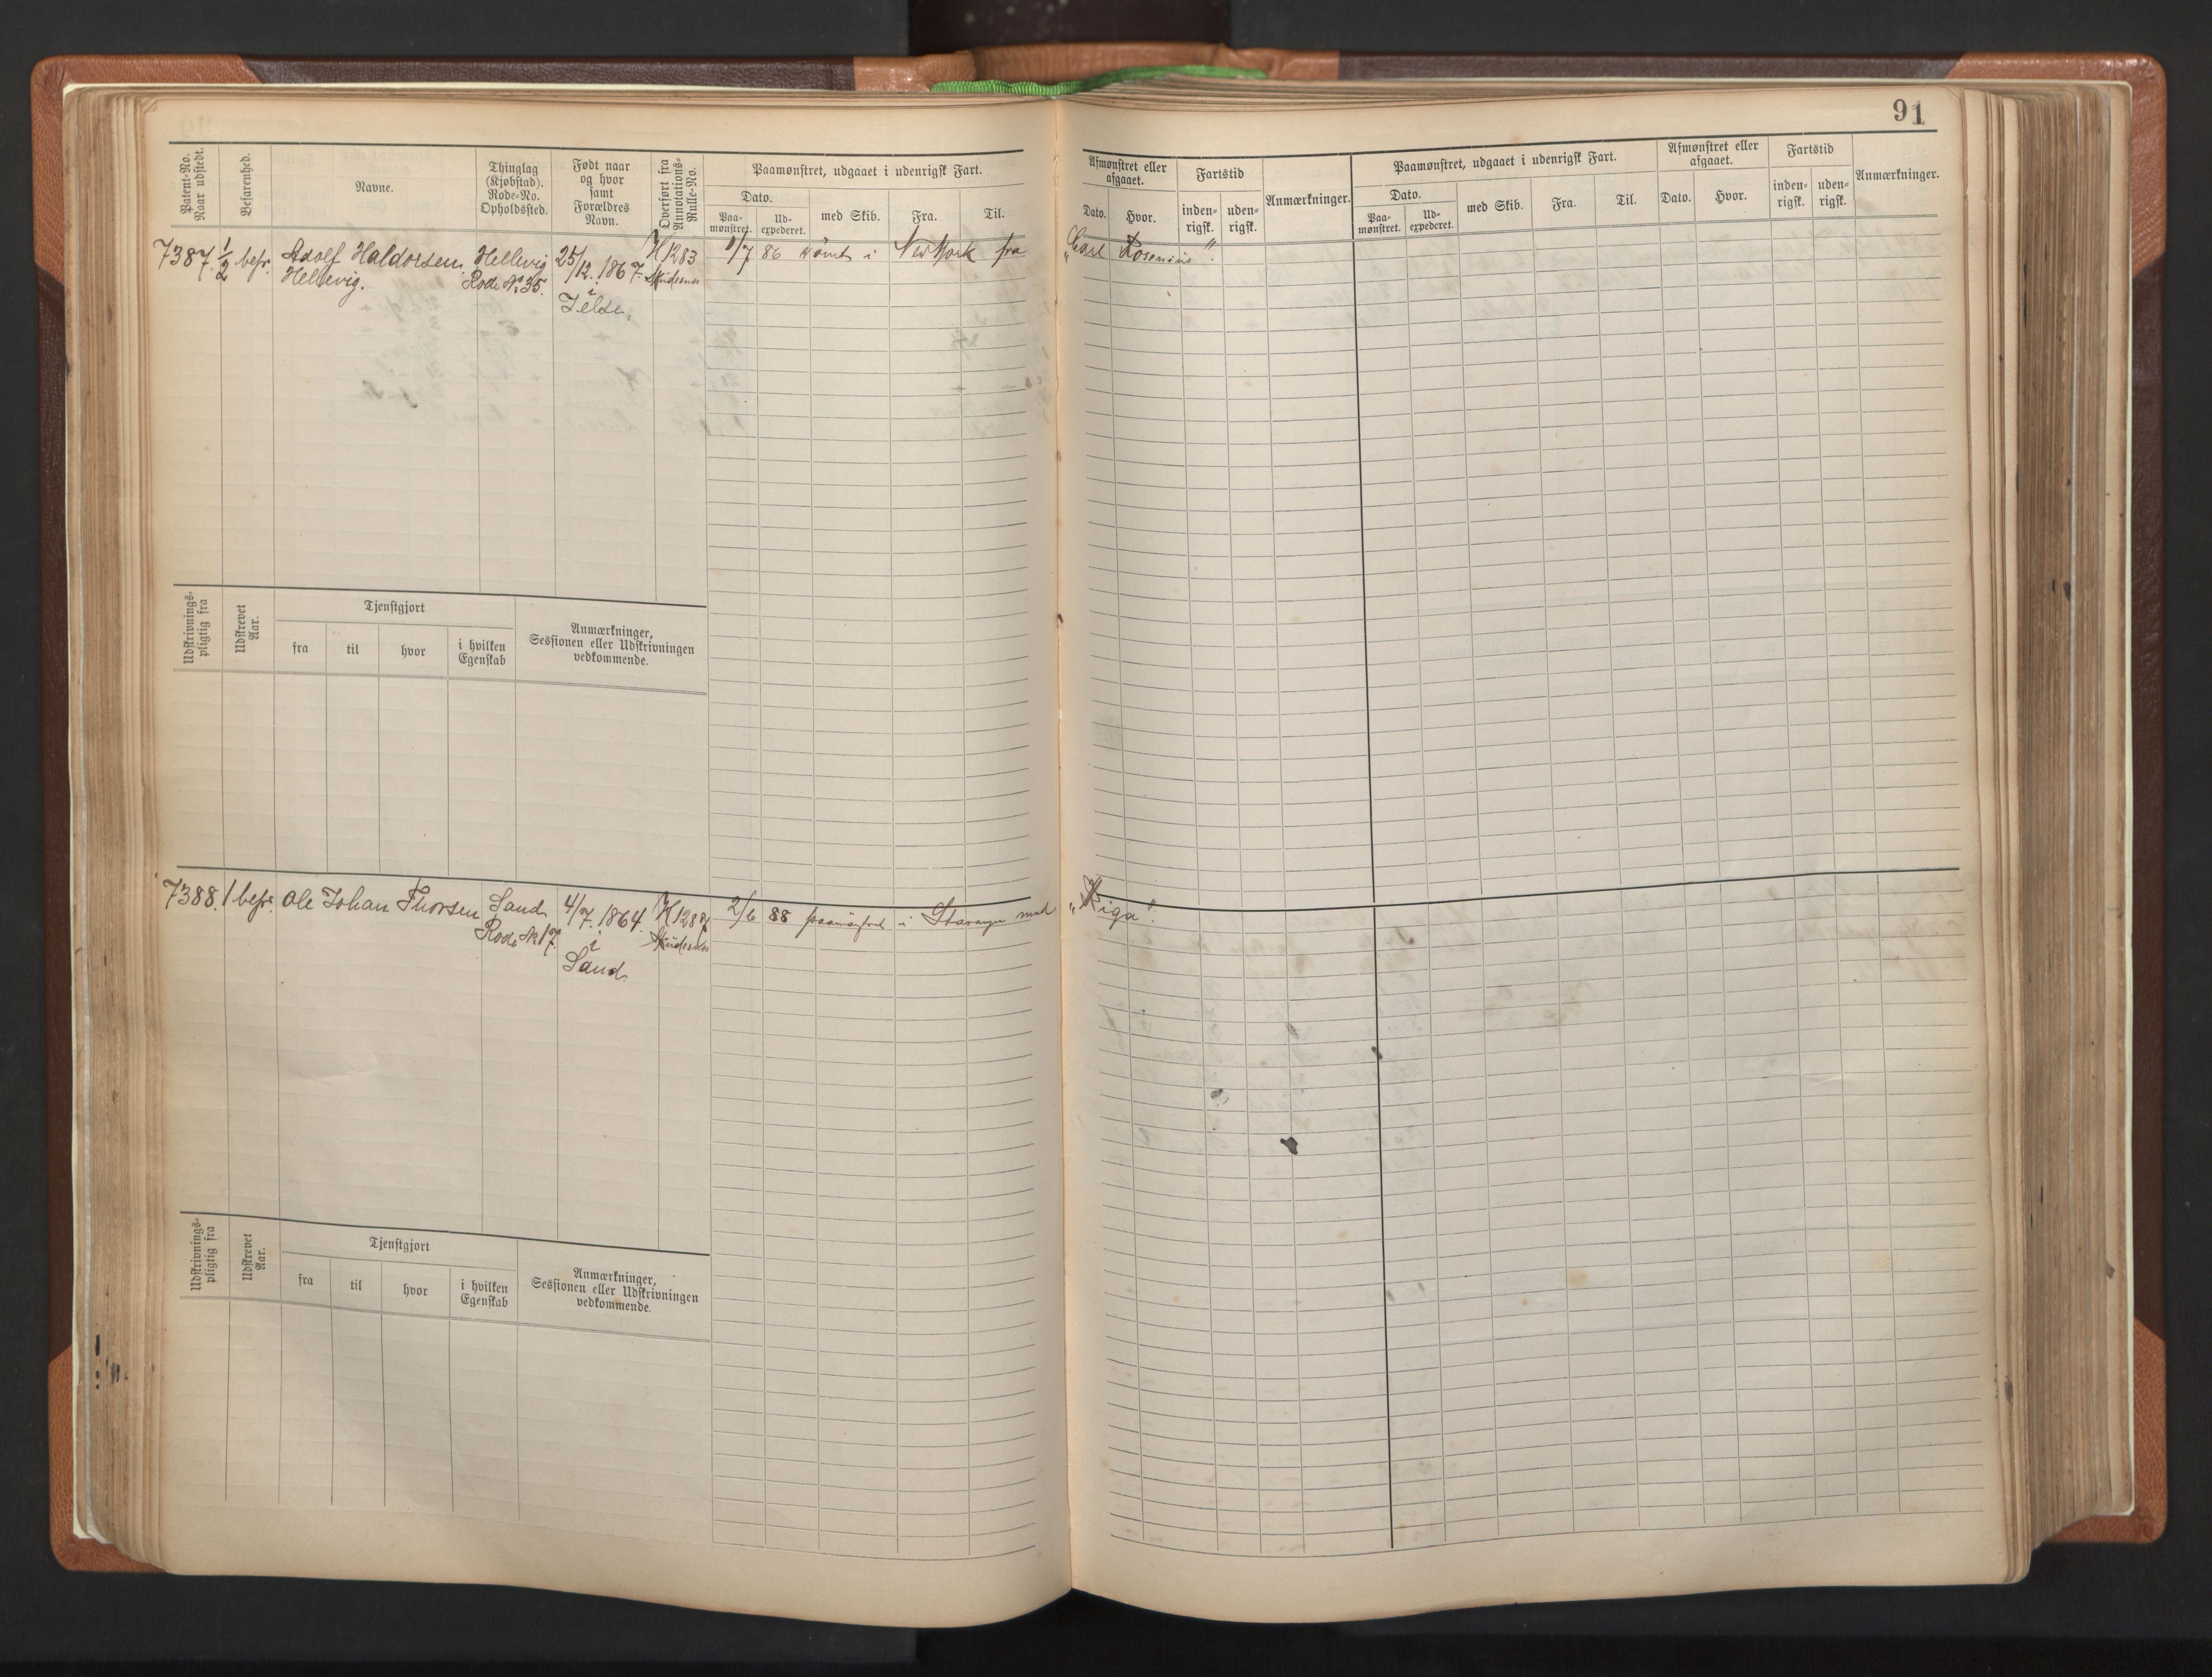 91
Patent-No. Naar udstedt.
Befarenhed.
Navne.
Thinglag (Kjøbstad). Rode-No. Opholdssted.
Født naar og hvor samt Forældres Navn.
Overført fra Annotations-Rulle-No.
Paamønstret, udgaaet i udenrigsk Fart.
Dato.
Paa-mønstret.
Ud-expederet.
med Skib.
Fra.
Til.
Afmønstret eller afgaaet.
Dato.
Hvor.
Fartstid
inden-rigsk.
uden-rigsk.
Anmærkninger.
Paamønstret, udgaaet i udenrigsk Fart.
Dato.
Paa-mønstret.
Ud-expederet.
med Skib.
Fra.
Til.
Afmønstret eller afgaaet.
Dato.
Hvor.
Fartstid
inden-rigsk.
uden-rigsk.
Anmærkninger.
7387. 1/2 befr. Adolf Haldorsen Hellevig 25/12 1867. H 1283 1/7 86 rømt i New York fra "Carl Rosenius".
Hellevig. Rode No 35. i Skudesnes
Jelse.
Udskrivnings-pligtig fra
Udskrevet Aar.
Tjenstgjort
fra
til
hvor
i hvilken Egenskab
Anmærkninger, Sessionen eller Udskrivningen vedkommende.
7388. 1 befr. Ole Johan Thorsen Sand 4/7 1864. H 1287 2/6 88 paamønstret i Stavanger med "Riga".
Rode No 17. i Skudesnes
Sand
Udskrivnings-pligtig fra
Udskrevet Aar.
Tjenstgjort
fra
til
hvor
i hvilken Egenskab
Anmærkninger, Sessionen eller Udskrivningen vedkommende.